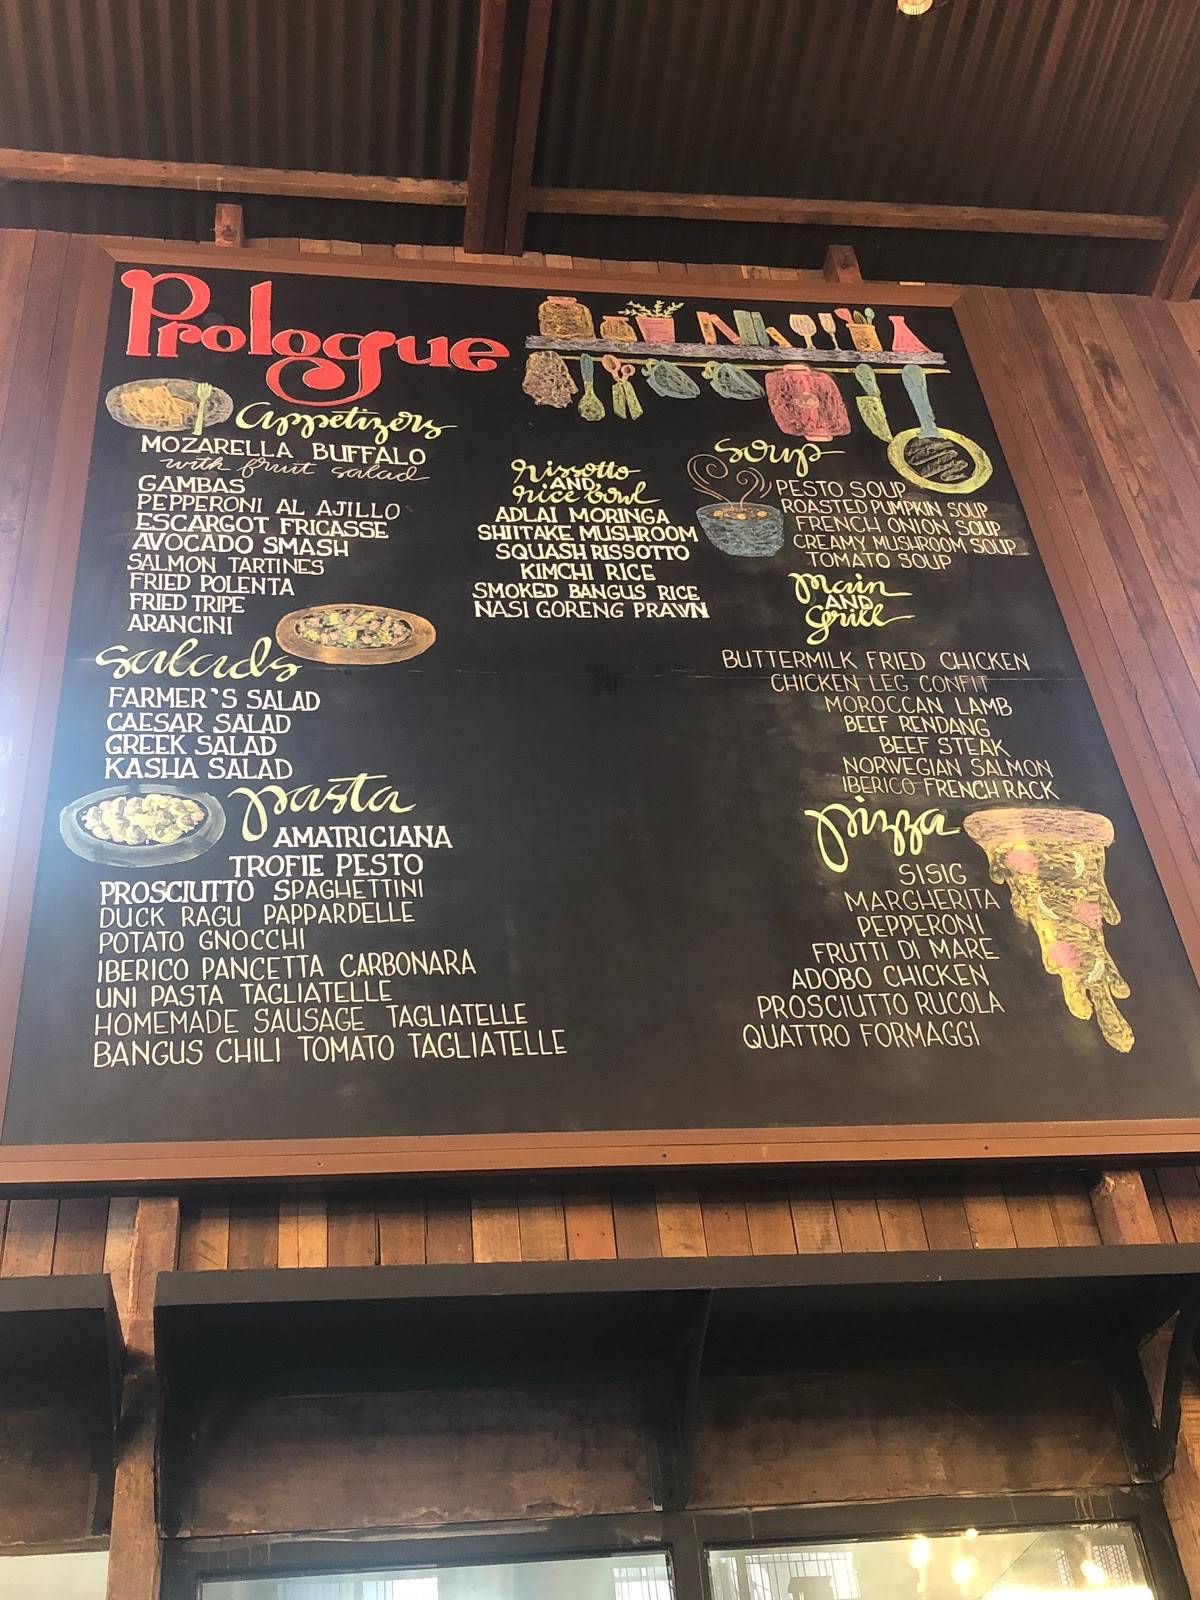 Prologue
Appetizers
MOZARELLA BUFFALO
with fruit salad
GAMBAS
PEPPERONI AL AJILLO
ESCARGOT FRICASSE
AVOCADO SMASH
SALMON TARTINES
FRIED POLENTA
FRIED TRIPE
ARANCINI
Salads
FARMER'S SALAD
CAESAR SALAD
GREEK SALAD
KASHA SALAD
Pasta
AMATRICIANA
TROFIE PESTO
PROSCIUTTO SPAGHETTINI
DUCK RAGU PAPPARDELLE
POTATO GNOCCHI
IBERICO PANCETTA CARBONARA
UNI PASTA TAGLIATELLE
HOMEMADE SAUSAGE TAGLIATELLE
BANGUS CHILI TOMATO TAGLIATELLE
Rissotto
AND
rice bowl
ADLAI MORINGA
SHIITAKE MUSHROOM
SQUASH RISSOTTO
KIMCHI RICE
SMOKED BANGUS RICE
NASI GORENG PRAWN
Soup
PESTO SOUP
ROASTED PUMPKIN SOUP
FRENCH ONION SOUP
CREAMY MUSHROOM SOUP
TOMATO SOUP
Main
AND
Grill
BUTTERMILK FRIED CHICKEN
CHICKEN LEG CONFIT
MOROCCAN LAMB
BEEF RENDANG
BEEF STEAK
NORWEGIAN SALMON
IBERICO FRENCH RACK
Pizza
SISIG
MARGHERITA
PEPPERONI
FRUTTI DI MARE
ADOBO CHICKEN
PROSCIUTTO RUCOLA
QUATTRO FORMAGGI